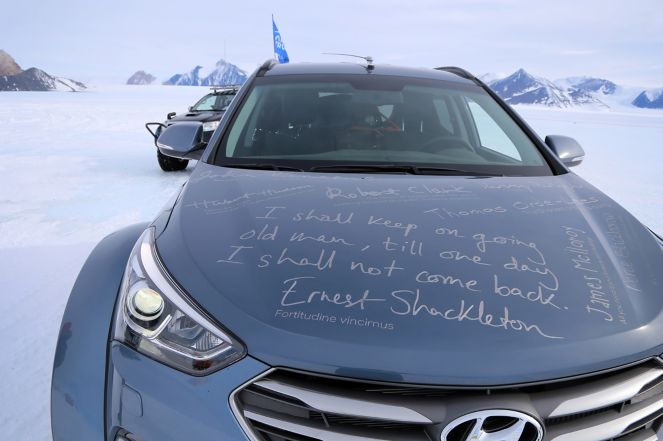 Robert Clark
Thomas Orde-Lees
I shall keep on going
old man, till one day
I shall not come back.
Ernest Shackleton
Fortitudine vincimus
James McIlroy